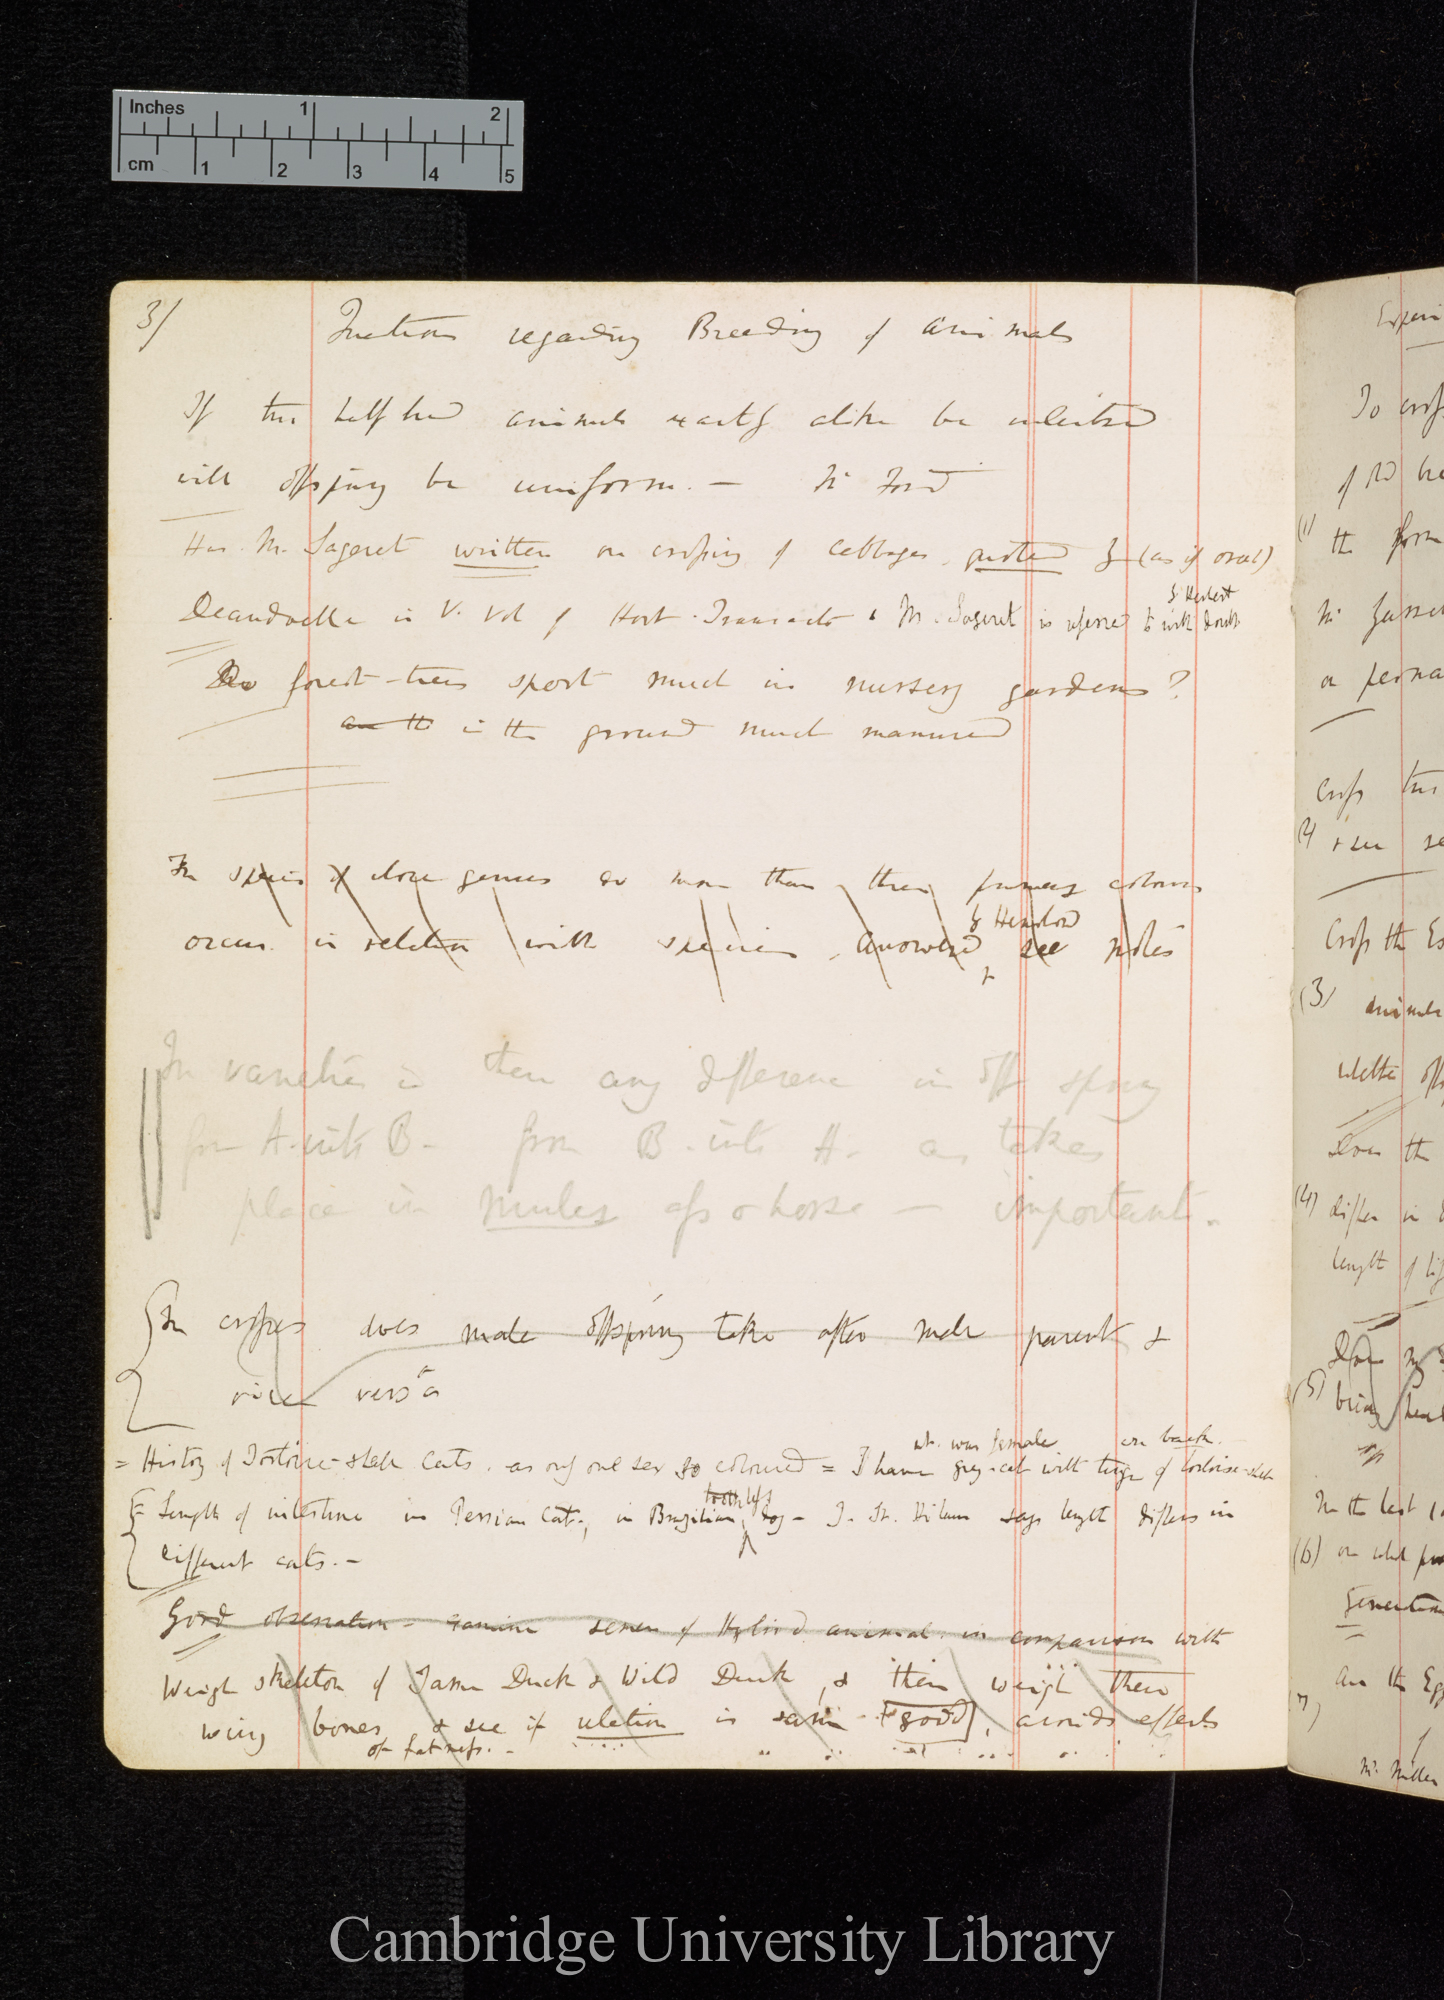 Inches 1 2
cm 1 2 3 4 5
3/
Questions regarding Breeding of Animals
If two half bred animals exactly alike be interbred
will offspring be uniform. — Mr Ford
Has Mr. Sageret written on crossing of cabbages, quoted by (as if oral)
by Herbert
Decandoelle in V. Vol of Hort. Transacts & M. Sageret is referred to with doubt
Do forest-trees sport much in nursery gardens?
are the in the ground much manured
In species of close genus do more than three primary colours
by Henslow
occur. in relation with species, answered, see notes
+
In varieties is there any difference in offspring
from A. with B — from B. with A — as takes
place in mules ass & horse — important.
In crosses does male offspring take after male parent &
vice versâ
wh. was female on back.
= History of Tortoise-shell Cats. as only one sex so coloured = I have grey-cat with tinge of tortoise-shell
toothless
= Length of intestine in Persian Cat., in Brazilian dog — I. St. Hilaire says length differs in
different cats. —
Good observation — examine semen of Hybrid animal. in comparison with
Weigh skeleton of Tame Duck & Wild Duck, & then weigh their
wing bones, & see if relation is same — [good], avoids effects
of fatness. —
To cross
of
(1) the
Mr
a
Cross two
(2)
Cross the
(3) animals
whether
Does the
(4) differ in
length of
(5)
In the last
(6) on what
Generation
Are the Egg
(7)
Mr. Miller
Cambridge University Library